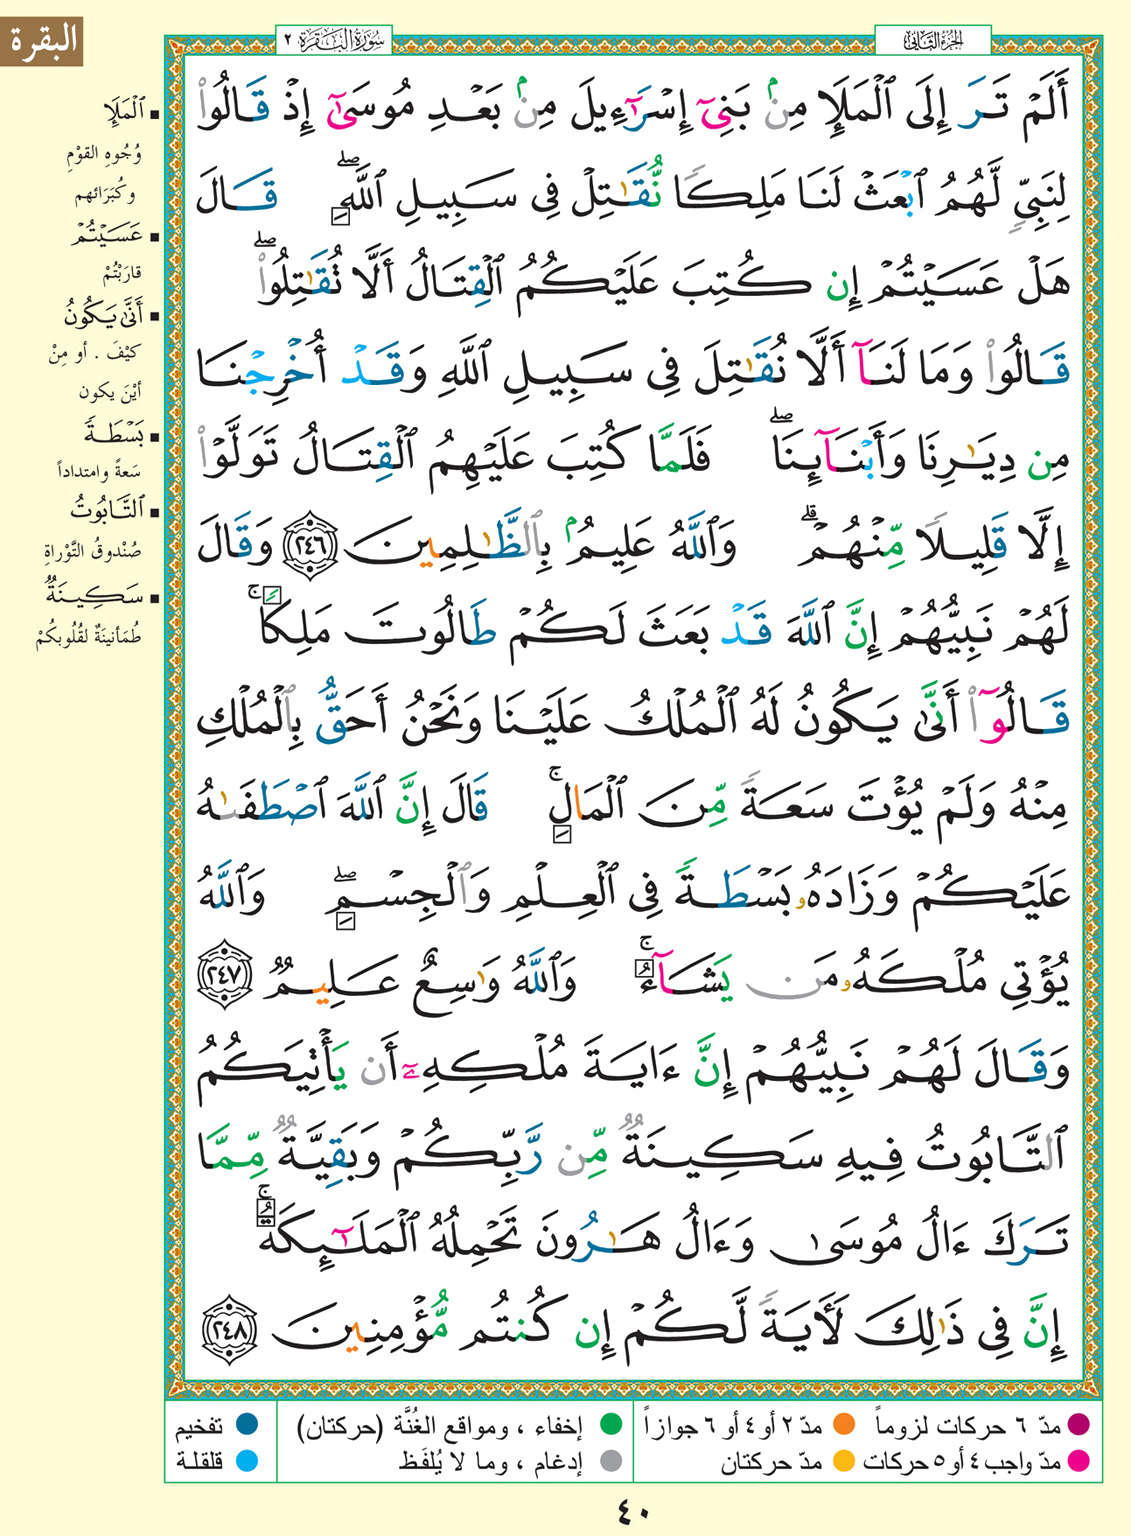 الجزء الثاني
سورة البقرة ٢
البقرة
أَلَمْ تَرَ إِلَى ٱلْمَلَإِ مِنۢ بَنِىٓ إِسْرَٰٓءِيلَ مِنۢ بَعْدِ مُوسَىٰٓ إِذْ قَالُوا۟
لِنَبِىٍّ لَّهُمُ ٱبْعَثْ لَنَا مَلِكًا نُّقَٰتِلْ فِى سَبِيلِ ٱللَّهِ ۖ قَالَ
هَلْ عَسَيْتُمْ إِن كُتِبَ عَلَيْكُمُ ٱلْقِتَالُ أَلَّا تُقَٰتِلُوا۟ ۖ
قَالُوا۟ وَمَا لَنَآ أَلَّا نُقَٰتِلَ فِى سَبِيلِ ٱللَّهِ وَقَدْ أُخْرِجْنَا
مِن دِيَٰرِنَا وَأَبْنَآئِنَا ۖ فَلَمَّا كُتِبَ عَلَيْهِمُ ٱلْقِتَالُ تَوَلَّوْا۟
إِلَّا قَلِيلًا مِّنْهُمْ ۗ وَٱللَّهُ عَلِيمٌۢ بِٱلظَّٰلِمِينَ ٢٤٦ وَقَالَ
لَهُمْ نَبِيُّهُمْ إِنَّ ٱللَّهَ قَدْ بَعَثَ لَكُمْ طَالُوتَ مَلِكًا ۚ
قَالُوٓا۟ أَنَّىٰ يَكُونُ لَهُ ٱلْمُلْكُ عَلَيْنَا وَنَحْنُ أَحَقُّ بِٱلْمُلْكِ
مِنْهُ وَلَمْ يُؤْتَ سَعَةً مِّنَ ٱلْمَالِ ۚ قَالَ إِنَّ ٱللَّهَ ٱصْطَفَىٰهُ
عَلَيْكُمْ وَزَادَهُۥ بَسْطَةً فِى ٱلْعِلْمِ وَٱلْجِسْمِ ۖ وَٱللَّهُ
يُؤْتِى مُلْكَهُۥ مَن يَشَآءُ ۚ وَٱللَّهُ وَٰسِعٌ عَلِيمٌ ٢٤٧
وَقَالَ لَهُمْ نَبِيُّهُمْ إِنَّ ءَايَةَ مُلْكِهِۦٓ أَن يَأْتِيَكُمُ
ٱلتَّابُوتُ فِيهِ سَكِينَةٌ مِّن رَّبِّكُمْ وَبَقِيَّةٌ مِّمَّا
تَرَكَ ءَالُ مُوسَىٰ وَءَالُ هَٰرُونَ تَحْمِلُهُ ٱلْمَلَٰٓئِكَةُ ۚ
إِنَّ فِى ذَٰلِكَ لَءَايَةً لَّكُمْ إِن كُنتُم مُّؤْمِنِينَ ٢٤٨
▪ ٱلْمَلَإِ
وُجُوهِ القوْمِ
وكُبَرَائهم
▪ عَسَيْتُمْ
قارَبْتُمْ
▪ أَنَّىٰ يَكُونُ
كيْفَ . أو مِنْ
أيْنَ يكون
▪ بَسْطَةً
سَعةً وامتداداً
▪ ٱلتَّابُوتُ
صُنْدوقُ التَّوْراةِ
▪ سَكِينَةٌ
طُمَأنينَةٌ لقُلُوبكُمْ
مدّ ٦ حركات لزوماً
مدّ ٢ أو ٤ أو ٦ جوازاً
إخفاء ، ومواقع الغُنَّة (حركتان)
تفخيم
مدّ واجب ٤ أو ٥ حركات
مدّ حركتان
إدغام ، وما لا يُلفَظ
قلقلة
٤٠